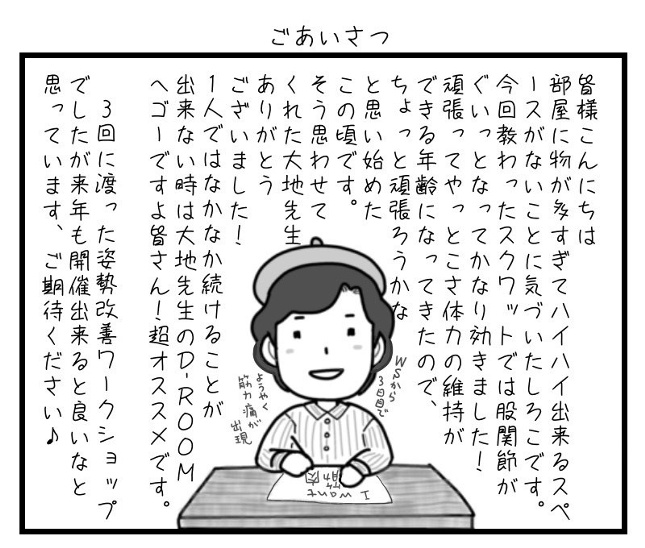 ごあいさつ
皆様こんにちは
部屋に物が多すぎてハイハイ出来るスペ
ースがないことに気づいたしろこです。
今回教わったスクワットでは股関節が
ぐいっとなってかなり効きました！
頑張ってやっとこさ体力の維持が
できる年齢になってきたので、
ちょっと頑張ろうかな
と思い始めた
この頃です。
そう思わせて
くれた大地先生
ありがとう
ございました！
1人ではなかなか続けることが
出来ない時は大地先生のD-ROOM
へゴーですよ皆さん！超オススメです。
3回に渡った姿勢改善ワークショップ
でしたが来年も開催出来ると良いなと
思っています、ご期待ください♪
WSから
3日目で
ようやく
筋肉痛が
出現
I want
筋肉